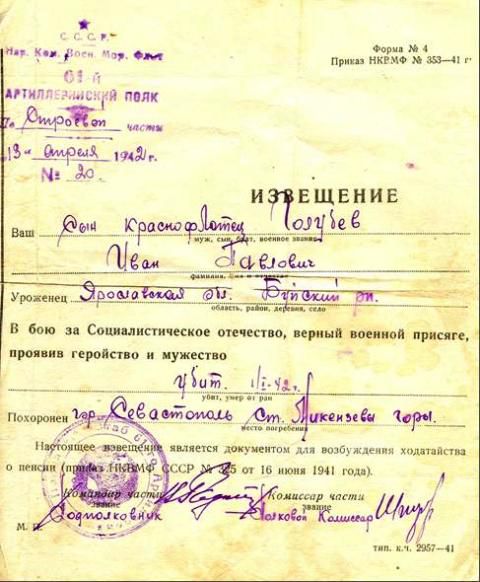 С. С. С. Р.
Нар. Ком. Воен. Мор. Флот
61-й
АРТИЛЛЕРИЙСКИЙ ПОЛК
По Строевой части
13 апреля 1942 г.
№ 20.
Форма № 4
Приказ НКВМФ № 353—41 г.
ИЗВЕЩЕНИЕ
Ваш сын краснофлотец Голубев
муж, сын, брат, военное звание
Иван Павлович
фамилия, имя и отчество
Уроженец Ярославская обл. Буйский рн.
область, район, деревня, село
В бою за Социалистическое отечество, верный военной присяге,
проявив геройство и мужество
убит. 1/I-42 г.
убит, умер от ран
Похоронен гор. Севастополь Ст. Микензевы горы.
место погребения
Настоящее извещение является документом для возбуждения ходатайства
о пенсии (приказ НКВМФ СССР № 325 от 16 июня 1941 года).
Командир части
звание
Подполковник
Комиссар части
звание
Полковой Комиссар
М. П.
тип. к.ч. 2957—41